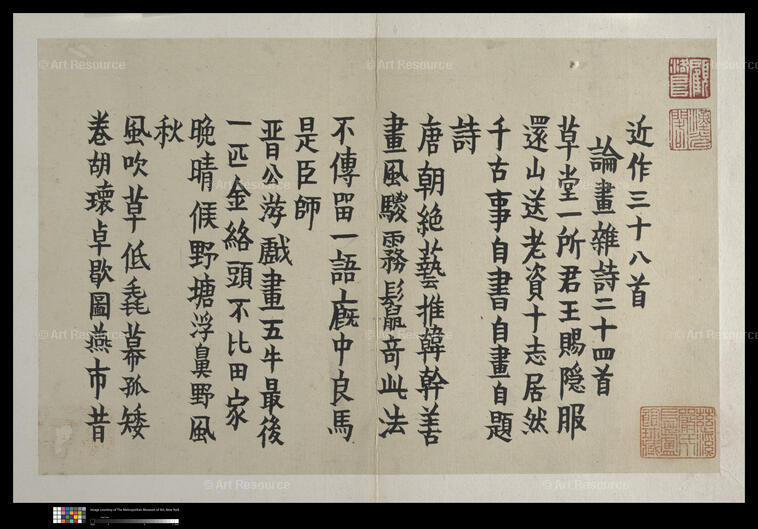 近作三十八首
論畫雜詩二十四首
草堂一所君王賜隐服
還山送老資十志居然
千古事自書自畫自題
詩
唐朝絕藝推韓幹善
畫風騣霧鬛奇此法
不傳畱一語廐中良馬
是臣師
晉公游戲畫五牛最後
一匹金絡頭不比田家
晚晴候野塘浮鼻野風
秋
風吹草低毳幕孤矮
卷胡瓌卓歇圖燕市昔
© Art Resource
© Art Resource
© Art Resource
© Art Resource
© Art Resource
© Art Resource
© Art Resource
© Art Resource
© Art Resource
Image courtesy of The Metropolitan Museum of Art, New York